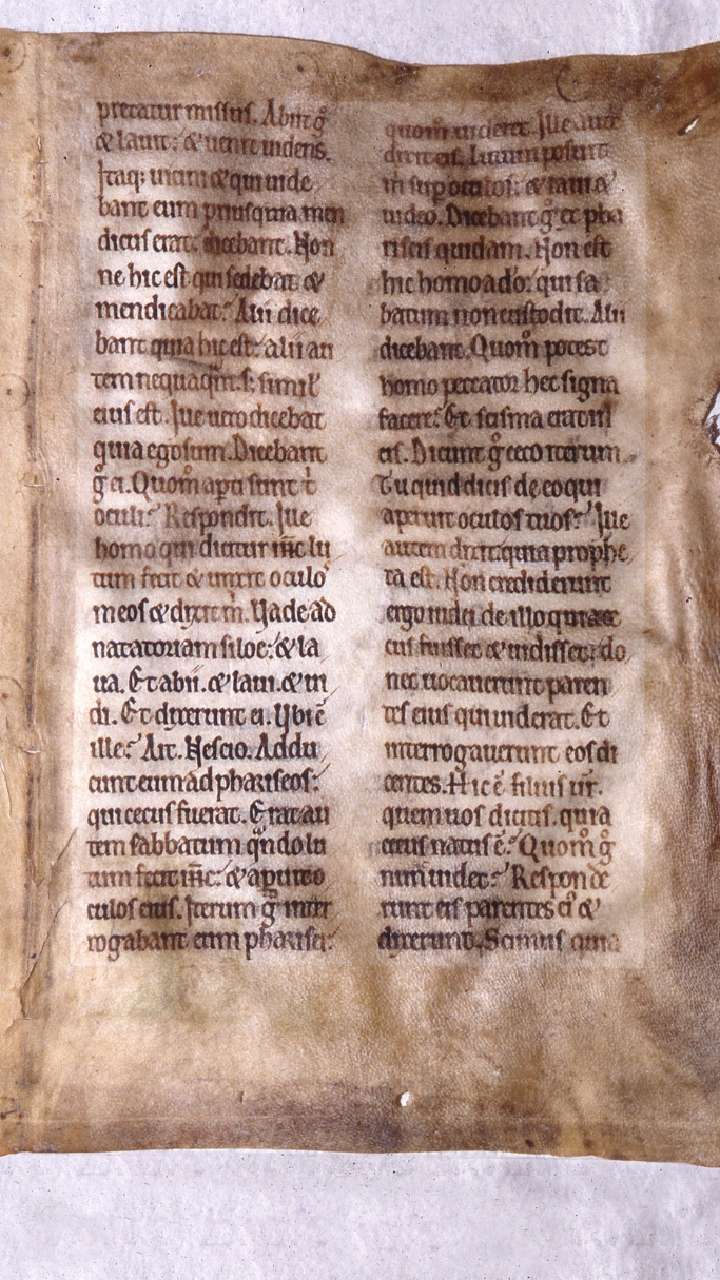 pretatur missus. Abiit gͦ
& lauit: & uenit uidens.
Itaq; uicini & qui uide
bant eum priusquā men
dicus erat: dicebant. Non
ne hic est qui sedebat &
mendicabat? Alii dice
bant quia hic est: alii au
tem nequaqͣm. s; simił
eius est. Ille uero dicebat
quia ego sum. Dicebant
gͦ ei. Quom̊ apti sunt t̍
oculi? Respondit. Ille
homo qui dicitur ihc̄ lu
tum fecit & unxit oculos
meos & dixit m̍. Uade ad
natatoriam siloe: & la
ua. Et abii. & laui. & ui
di. Et dixerunt ei. Ubi ē
ille? Ait. Nescio. Addu
cunt eum ad phariseos:
qui cecus fuerat. Erat au
tem sabbatum qn̄do lu
tum fecit ihc̄: & aperuit o
culos eius. Iterum gͦ inter
rogabant eum pharisei:
quom̊ uideret. Ille aute
dixit eis. Lutum posuit
m̍ sup oculos: & laui &
uideo. Dicebant gͦ ex pha
riseis quidam. Non est
hic homo a do: qui sa
batum non custodit. Alii
dicebant. Quom̊ potest
homo peccator hec signa
facere? Et scisma erat in
eis. Dicunt gͦ ceco iterum.
Tu quid dicis de eo qui
aperuit oculos tuos? Ille
autem dixit: quia prophe
ta est. Non crediderunt
ergo iudei de illo quia ce
cus fuisset & uidisset: do
nec uocauerunt paren
tes eius qui uiderat. Et
interrogauerunt eos di
centes. Hic ē filius ur̄.
quem uos dicitis. quia
cecus natus ē? Quom̊ gͦ
nunc uidet? Responde
runt eis parentes ei᷒ &
dixerunt. Scimus quia